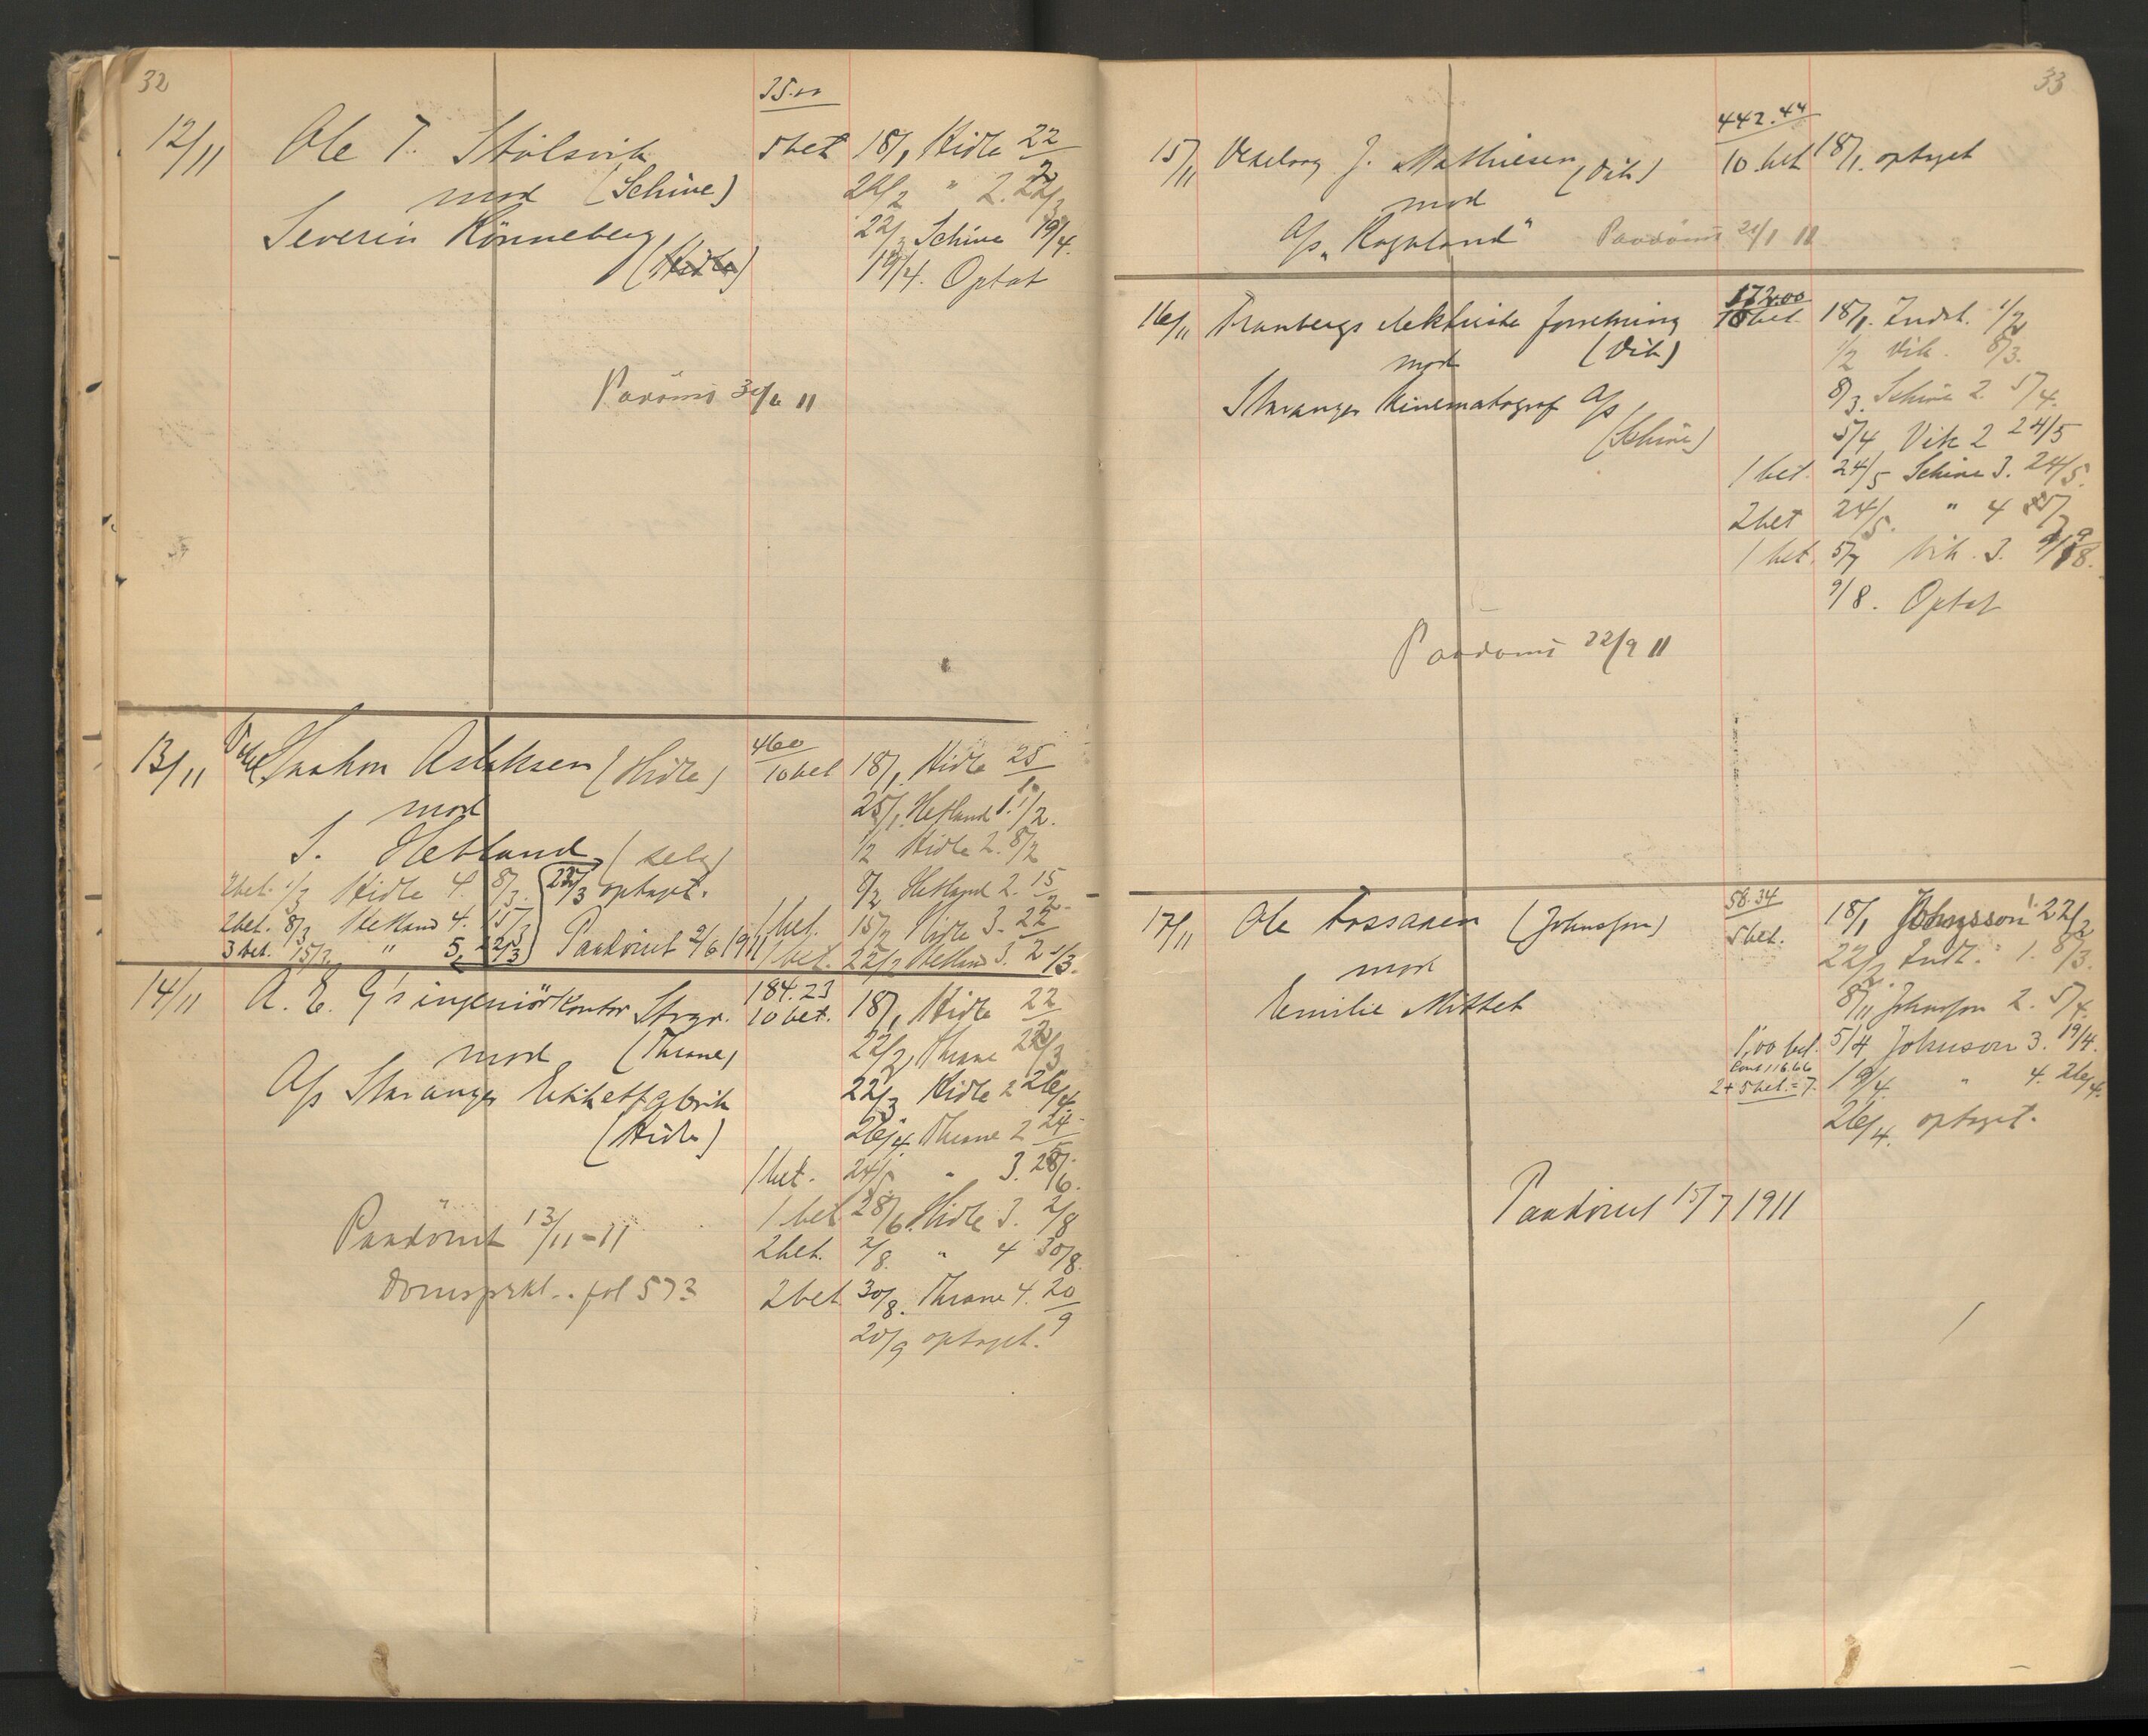 32
35.00
12/11 Ole T. Stölsvik 5 bet 18/1 Hidle 22/2
mod (Schive) 22/2 " 2. 22/3
Severin Rönneberg 22/3 Schive 19/4.
(Hidle) 19/4. Optat
Paadömt 30/6 11
460
13/11 Aslaksen (Hidle) 10 bet 18/1 Hidle 25/1
mod 25/1 Hetland 1. 1/2.
S. Hetland (selv) 1/2 Hidle 2. 8/2
2 bet. 1/3 Hidle 4. 8/3. 22/3 optaget. 8/2 Hetland 2. 15/2
2 bet. 8/3 Hetland 4. 15/3 1 bet. 15/2 Hidle 3. 22/2
3 bet. 15/3 " 5. 22/3 Paadömt 2/6 1911 1 bet. 22/2 Hetland 3. 1/3.
14/11 A. E. G's ingeniörkontor Stvgr. 184.23
10 bet. 18/1 Hidle 22/2
mod (Thrane) 22/2 Thrane 22/3
A/s Stavanger Etiketfabrik 22/3 Hidle 2 26/4
(Hidle) 26/4. Thrane 2 24/5
1 bet. 24/5 " 3. 28/6.
1 bet 28/6 Hidle 3. 2/8
Paadömt 13/11-11 2 bet. 2/8. " 4 30/8.
Domsprkl.. fol 573 2 bet 30/8. Thrane 4. 20/9
20/9 optaget.
33
442.44
15/11 J. Mathiesen (Vik) 10 bet 18/1. optaget
mod
A/s "Rogaland" Paadömt 21/1 11
172.00
16/11 Tranbergs elektriske forretning 10 bet. 18/1. Indst. 1/2
mod (Vik) 1/2 Vik. 8/3.
Stavanger Kinematograf A/s 8/3. Schive 2. 5/4.
(Schive) 5/4 Vik 2 24/5
1 bet. 24/5 Schive 3. 24/5.
2 bet 24/5. " 4 5/7
1 bet. 5/7 Vik. 3. 9/8.
9/8. Optat
Paadömt 22/9 11
58.34
17/11 Ole Fossanen (Johnsson) 5 bet. 18/1 Johnsson 22/2
mod 22/2 Indst. " 1. 8/3.
Emilie Mittet 8/11 Johnsson 2. 5/4.
1,00 bet. 5/4 Johnson 3. 19/4.
116.66
2 + 5 bet. = 7. 19/4. " 4. 26/4.
26/4. optaget.
Paadömt 15/7 1911